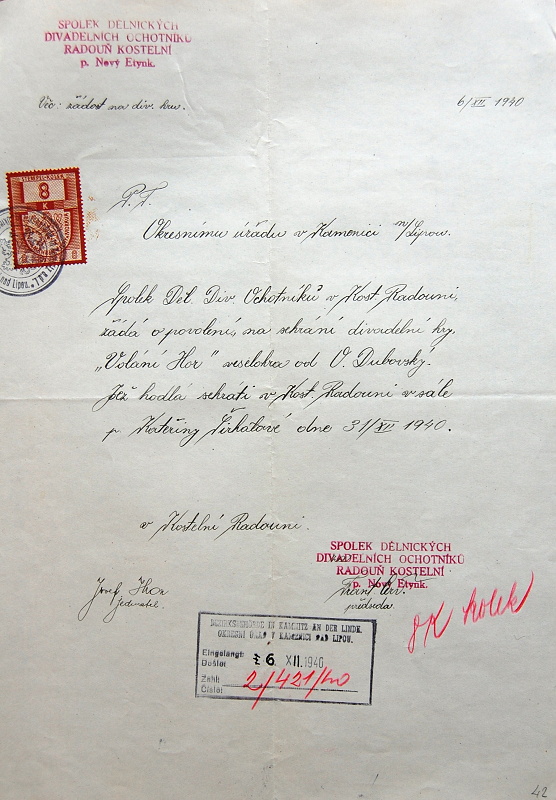 SPOLEK DĚLNICKÝCH
DIVADELNÍCH OCHOTNÍKŮ
RADOUŇ KOSTELNÍ
p. Nový Etynk.
Věc: žádost na div. hru.
6/XII 1940
STEMPEL-KOLEK
8
K
P. T.
Okresnímu úřadu v Kamenici n/Lipou.
Spolek Děl. Div. Ochotníků v Kost. Radouni,
žádá o povolení, na sehrání divadelní hry,
„Volání Hor" veselohra od O. Dubovský.
Jež hodlá sehráti v Kost. Radouni v sále
p. Kateřiny dne 31/XII 1940.
v Kostelní Radouni.
SPOLEK DĚLNICKÝCH
DIVADELNÍCH OCHOTNÍKŮ
RADOUŇ KOSTELNÍ
p. Nový Etynk.
Josef
jednatel.
předseda.
8K kolek
BEZIRKSBEHÖRDE IN KAMNITZ AN DER LINDE.
OKRESNÍ ÚŘAD V KAMENICI NAD LIPOU.
Eingelangt:
Došlo:
6. XII. 1940
Zahl:
Číslo:
2/421/40
42